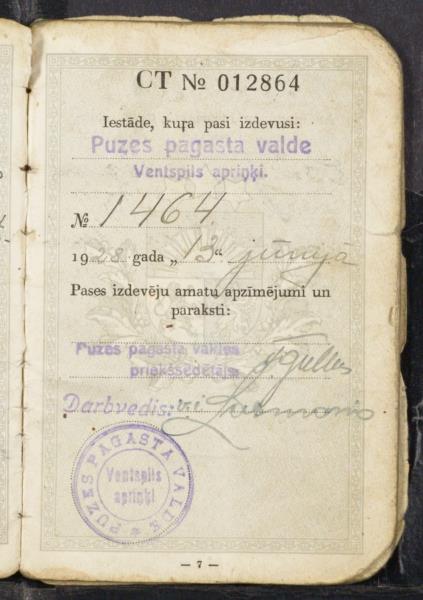 CT № 012864
Iestāde, kuŗa pasi izdevusi:
Puzes pagasta valde
Ventspils apriņķī.
№ 1464
1928 gada „13“ jūnijā
Pases izdevēju amatu apzīmējumi un
paraksti:
Puzes pagasta valdes
priekšsēdētājs
Darbvedis:
PUZES PAGASTA VALDE
Ventspils
apriņķī
— 7 —